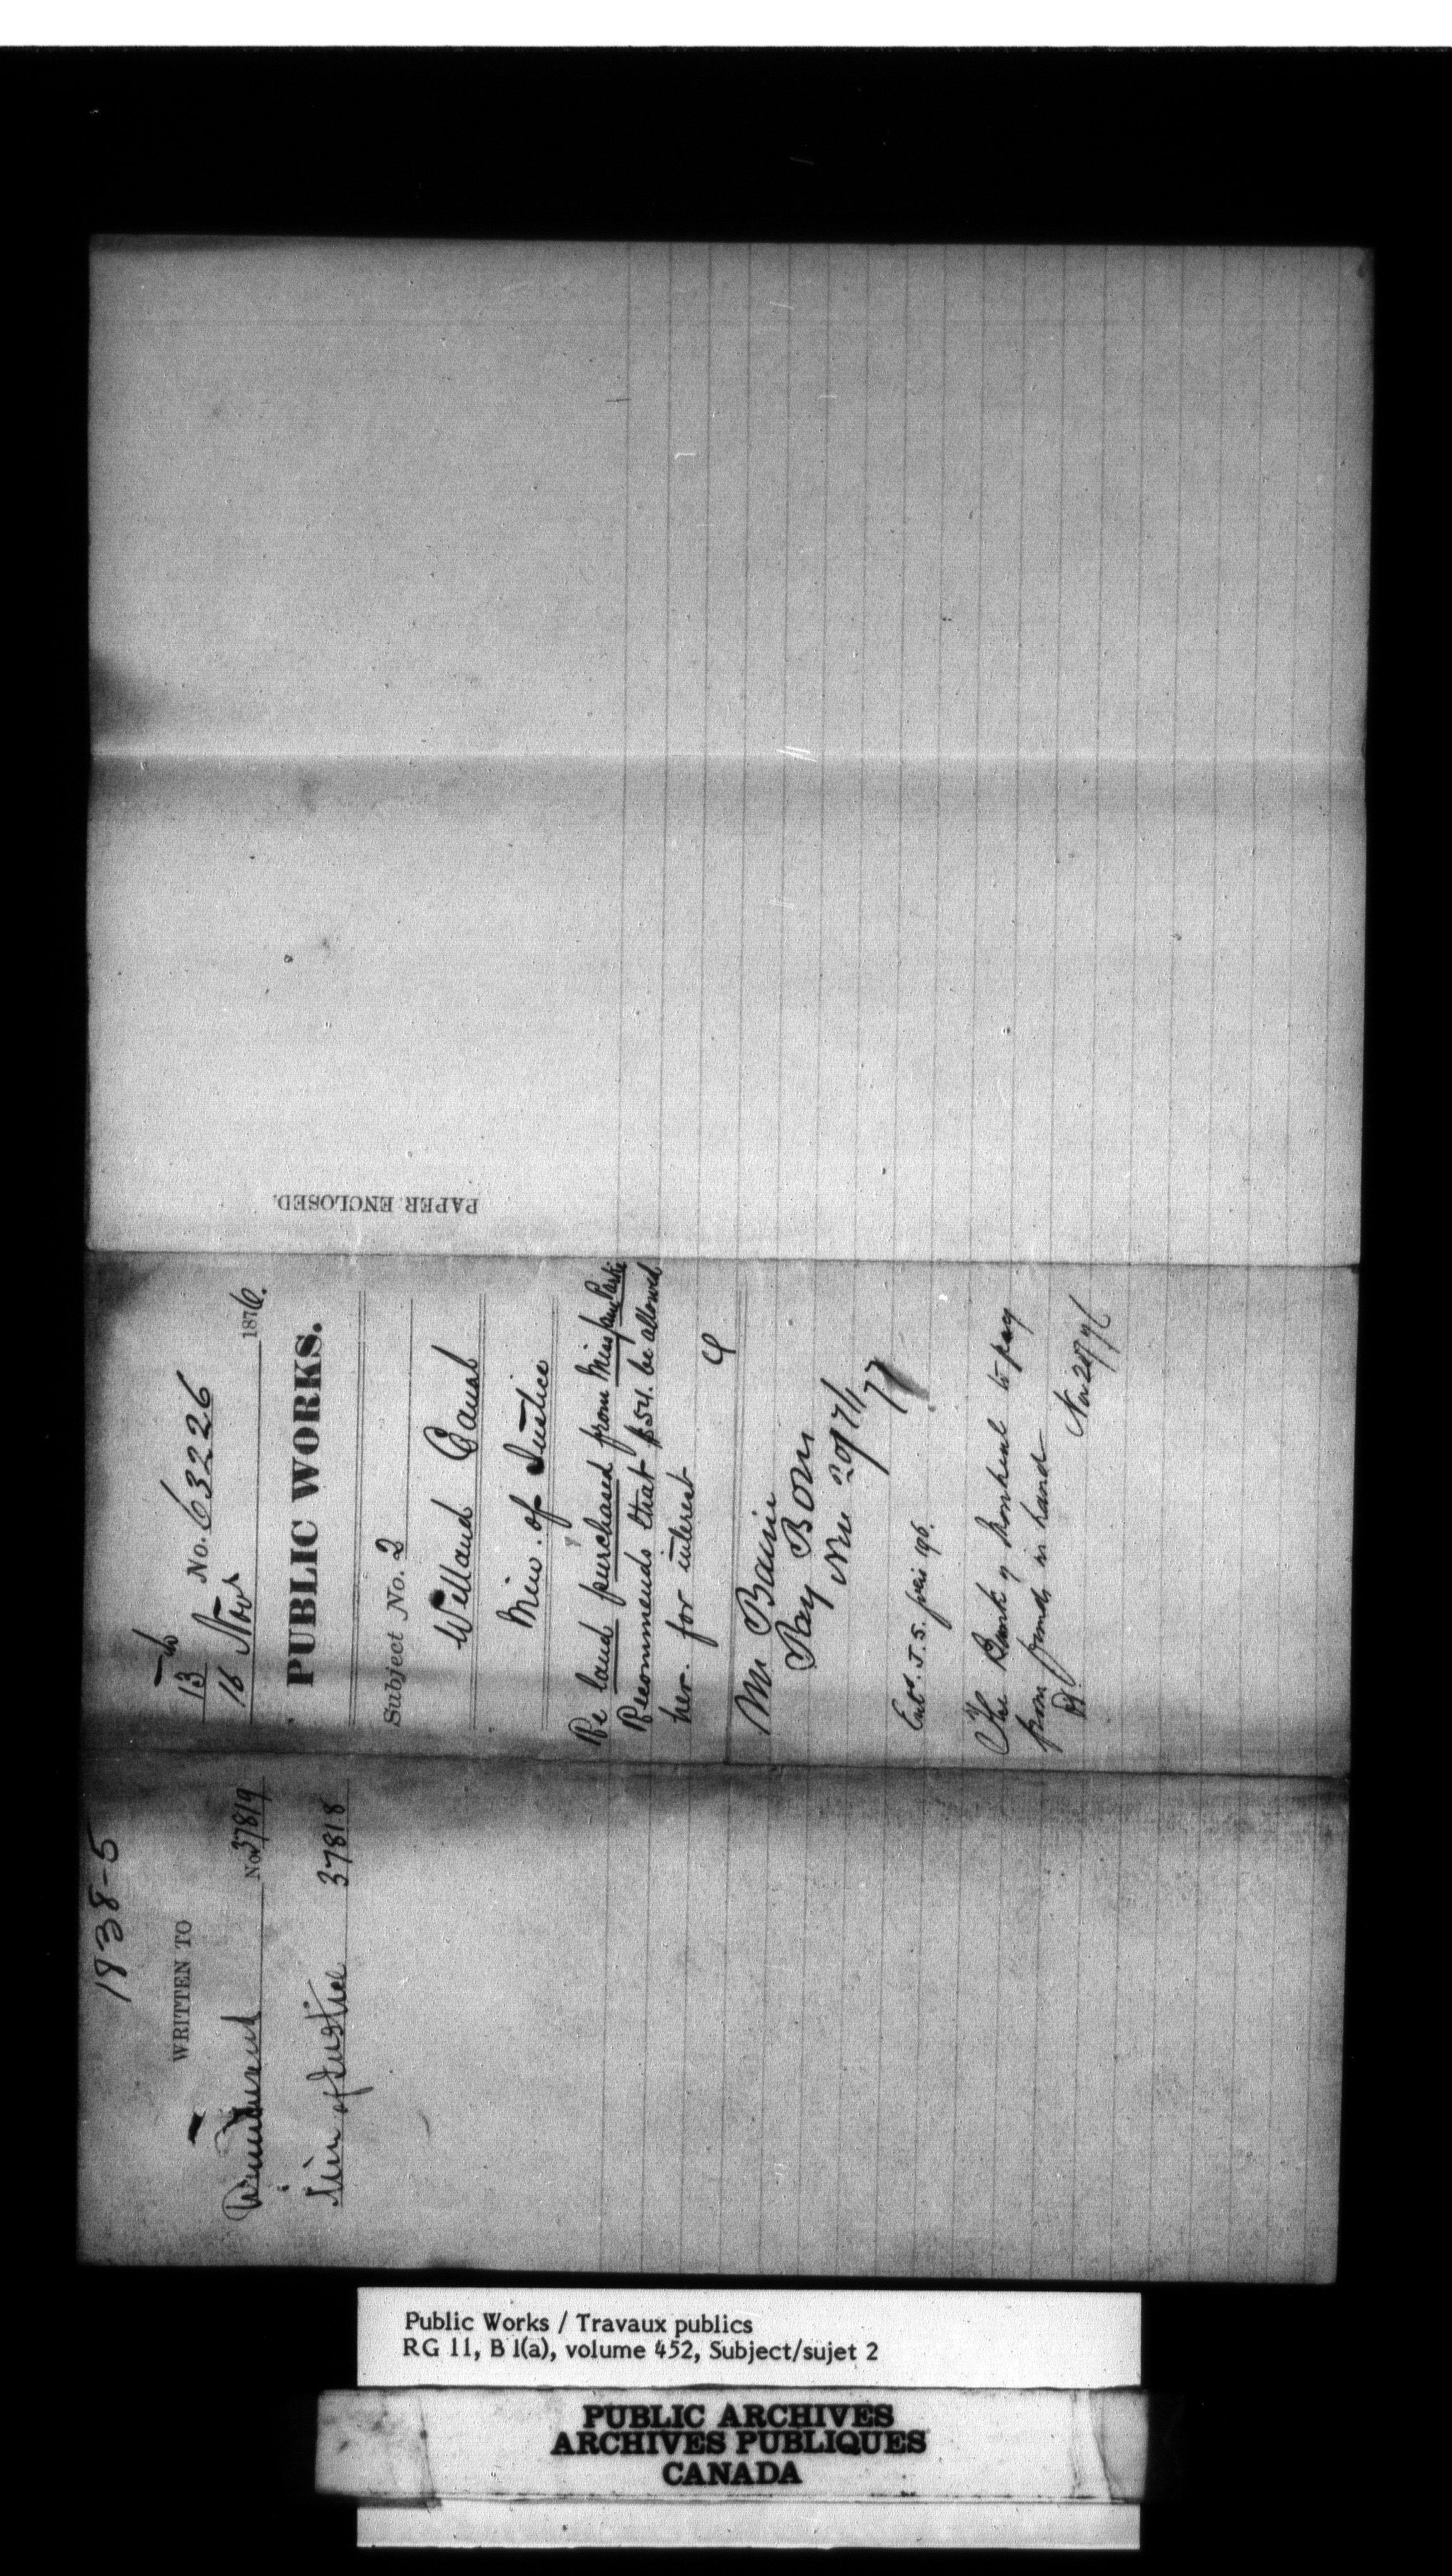 1938-5
WRITTEN TO
No. 37819
Min of Justice 37818
13
16 Nov No. 63226
1876.
PUBLIC WORKS.
Subject No. 2
Welland Canal
Min. of Justice
Re land purchased from Miss Jane
Recommends that $54. be allowed
her. for interest
Mr Bain
Pay
The Bank of Montreal to pay
from funds in hand
Nov 28/76
PAPER ENCLOSED.
Public Works / Travaux publics
RG 11, B 1(a), volume 452, Subject/sujet 2
PUBLIC ARCHIVES
ARCHIVES PUBLIQUES
CANADA